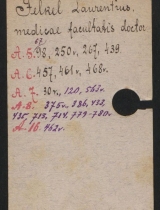 Felkel Laurentius.
medicae facultatis doctor
A. 5. 98, 250v, 267, 439.
A. 6. 457, 461v, 468v.
A. 7. 30v, 120, 562v.
A. 8. 375v, 386, 433,
435, 713, 714, 779-780.
A. 16. 962v.